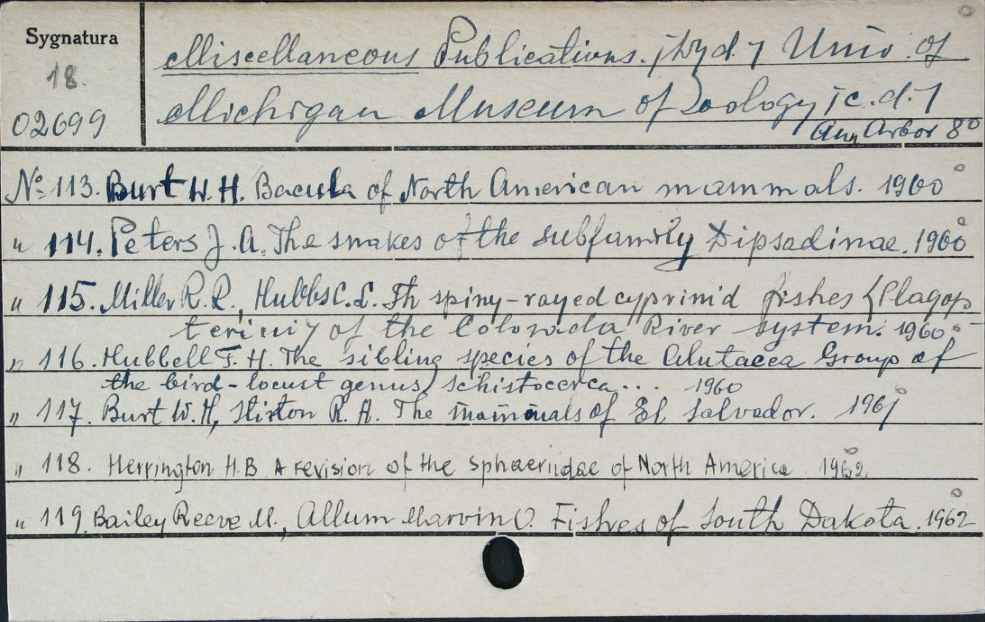 Sygnatura
18.
02699
Miscellaneous Publications. /Wyd./ Univ. of
Michigan Museum of Zoology /c.d./
Ann Arbor 8°
№ 113. Burt W. H. Bacula of North American mammals. 1960
" 114. Peters J. A. The snakes of the subfamily Dipsadinae. 1960
" 115. Miller R. R., Hubbs C. L. Th spiny-rayed cyprinid fishes (Plagop
terini) of the Colorado River system. 1960
" 116. Hubbell T. H. The sibling species of the Alutacea Group of
the bird-locust genus Schistocerca... 1960
" 117. Burt W. H, Stirton R. A. The mammals of El Salvador. 1961
" 118. Herrington H. B A revision of the Sphaeriidae of North America 1962
" 119 Bailey Reeve M., Allum Marvin O. Fishes of South Dakota. 1962